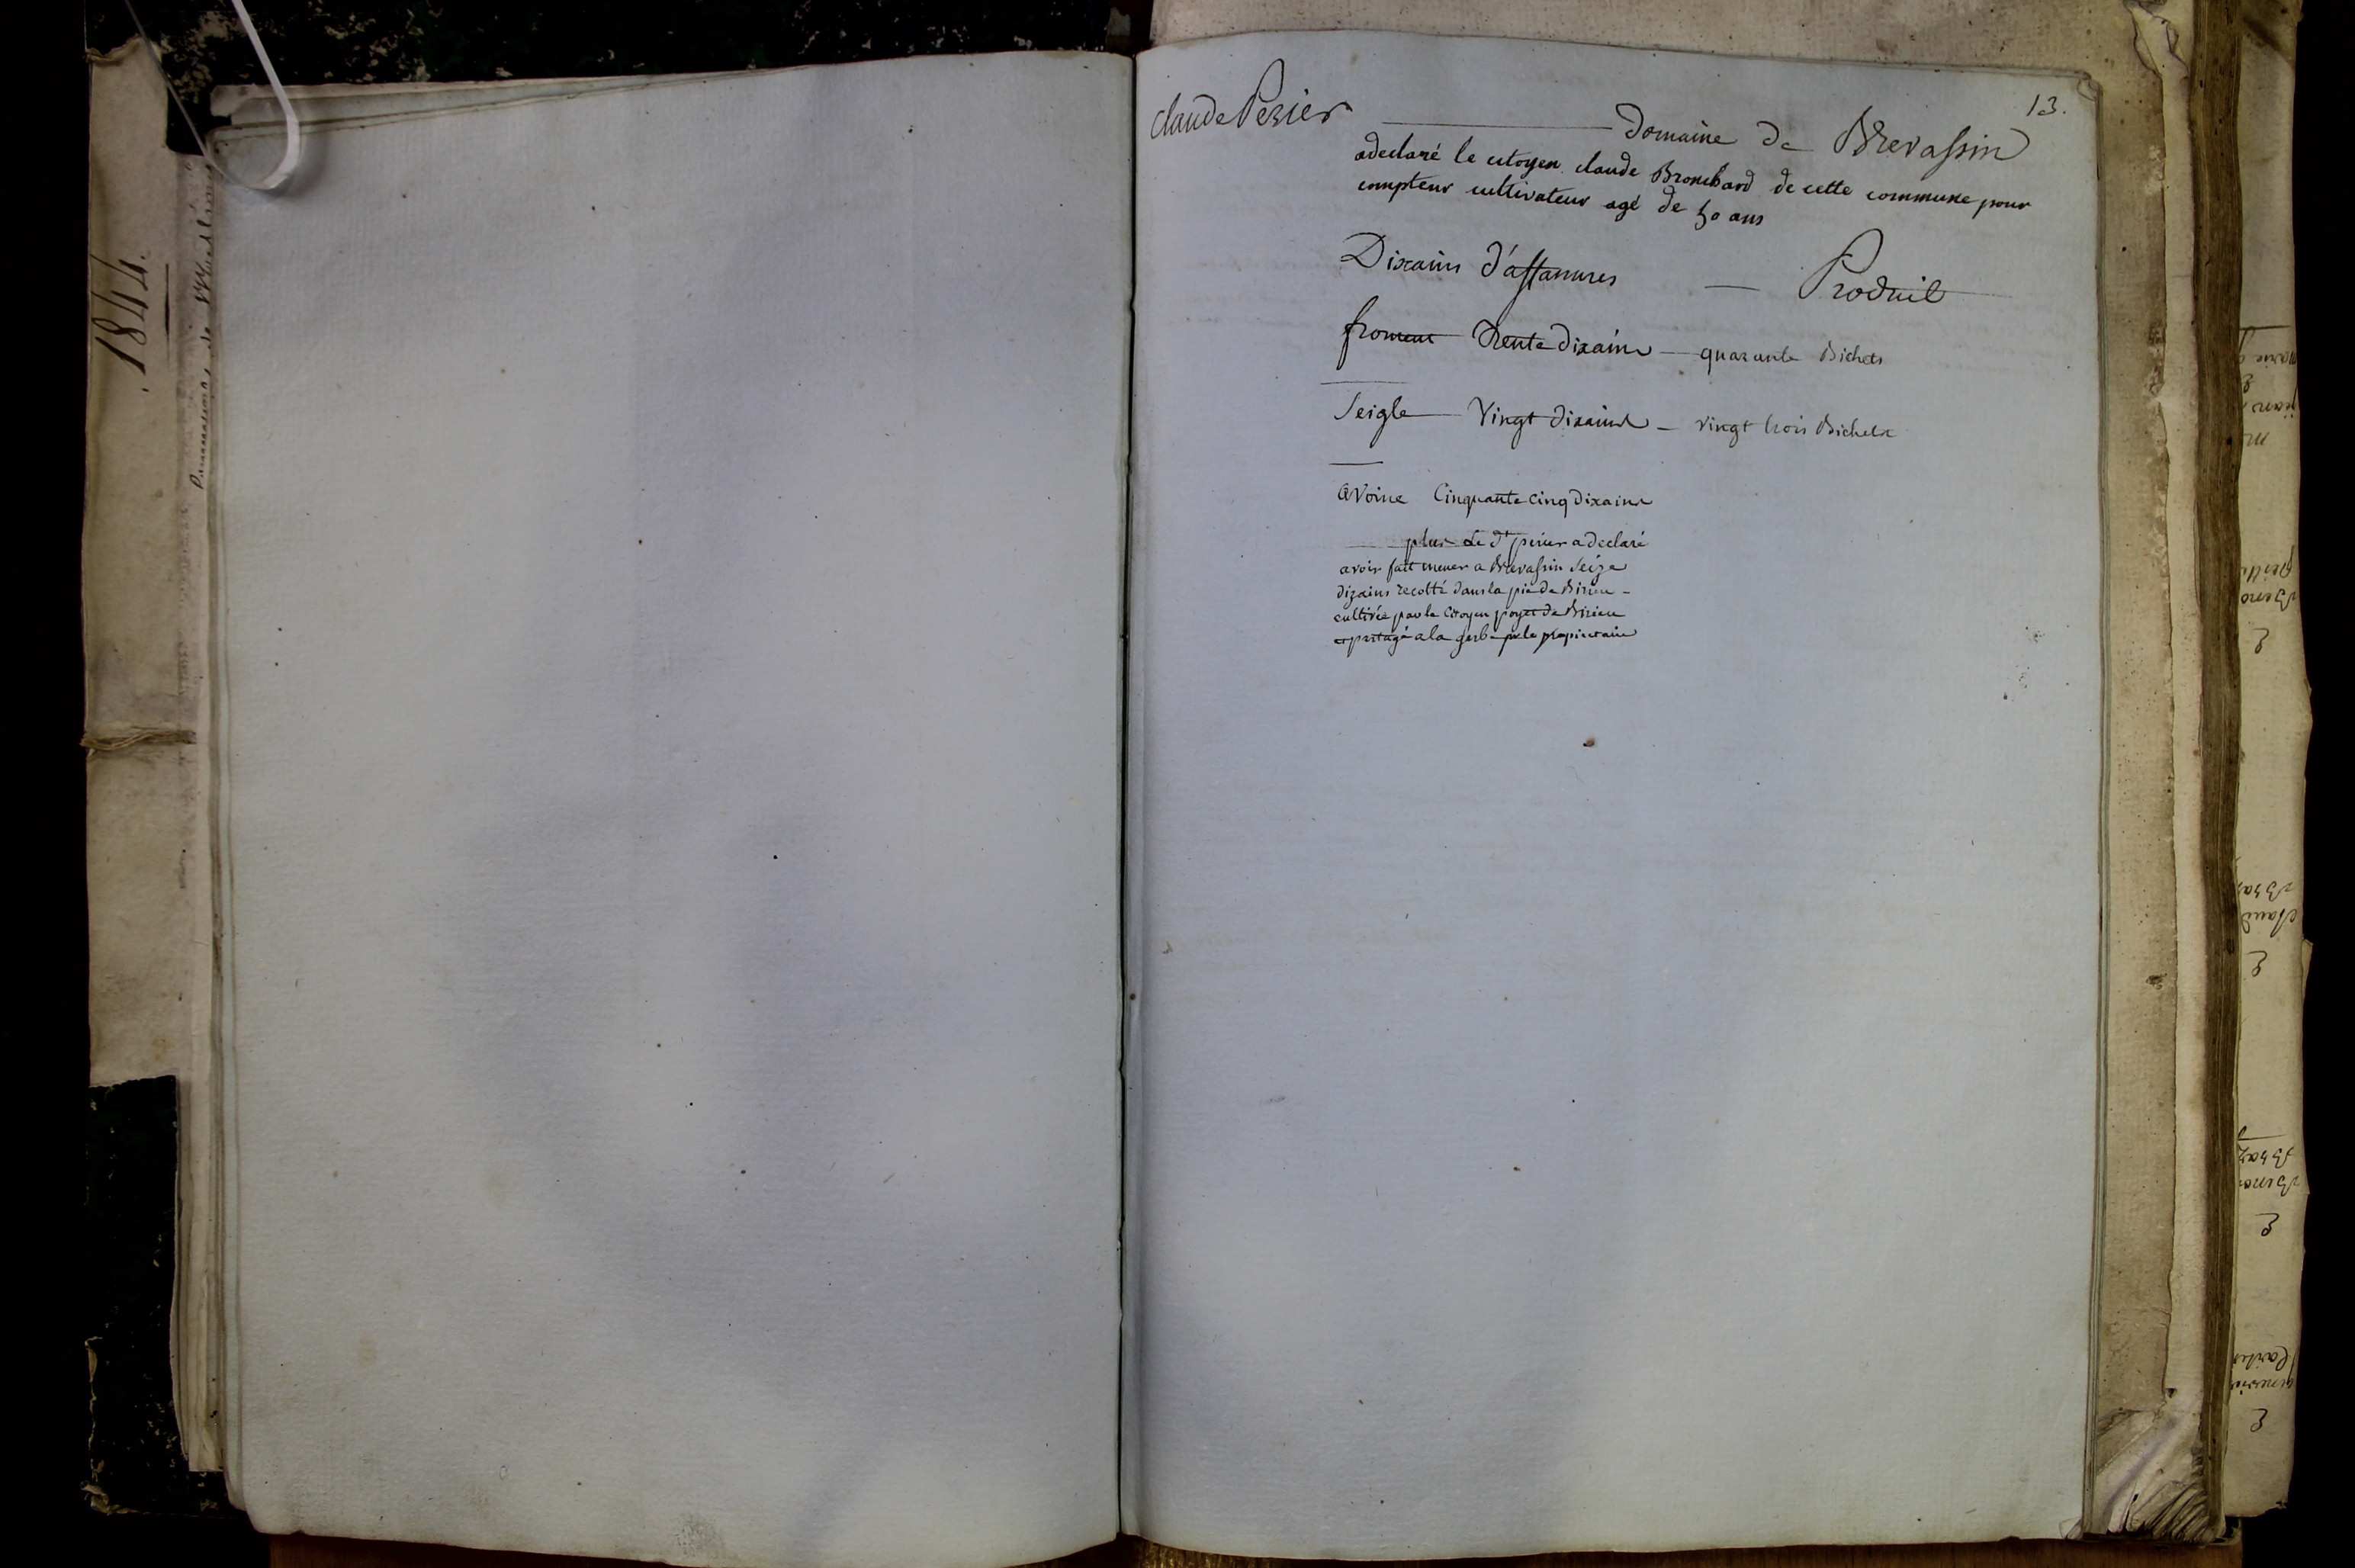 1844.
13.
Claude Perier — domaine de Brevassin
adeclaré le citoyen claude Bronchard de cette commune pour
compteur cultivateur agé de 50 ans
Dixains d'assanures — Produit
froment Trente dixains — quarante Bichets
Seigle Vingt dixains — vingt trois Bichets
avoine Cinquante cinq dixains
plus Le dt perier a declaré
avoir fait mener a Brevassin Seize
dizains recolté dans la pie de Birieu
cultivée par le Citoyen poyet de Birieu
et partagé a la gerbe par le proprietaire